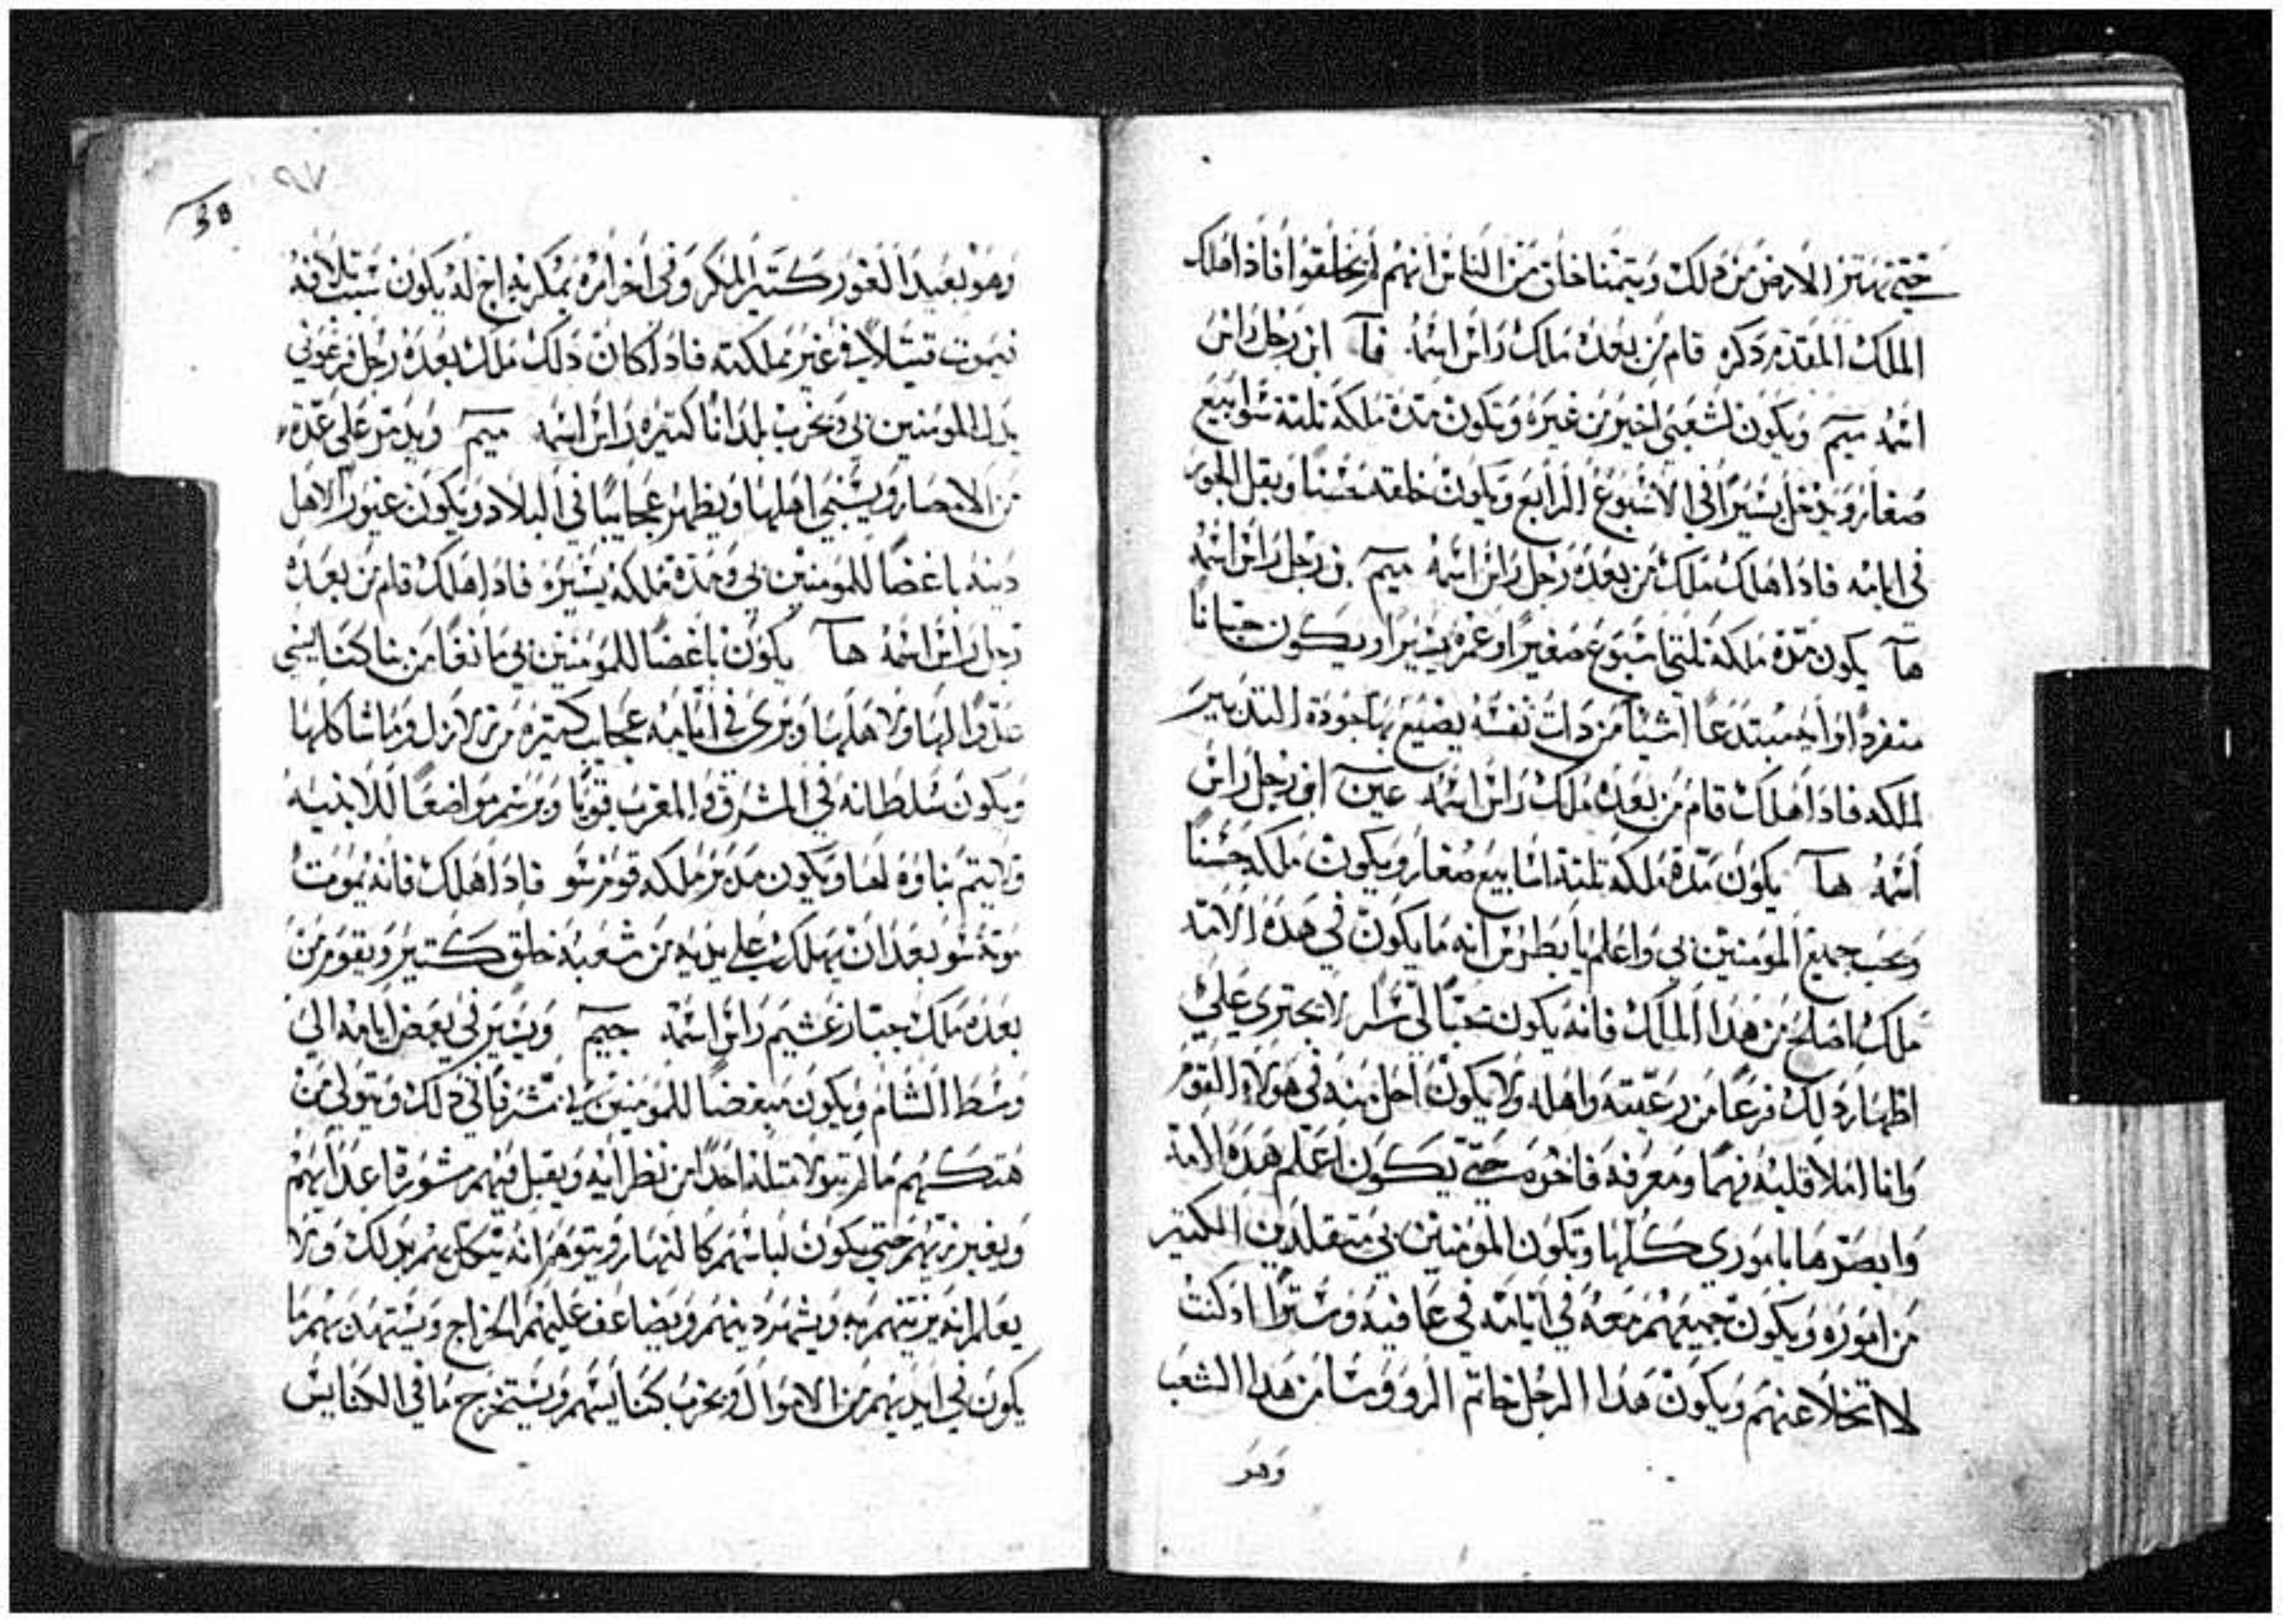 حتى تهتز الارض من دلك ويتمنا خلق من الناس انهم لم يخلقوا فاذا هلك
الملك المقدم دكره قام من بعده ملك راس اسمه فآ ابن رجل راس
اسمه ميم ويكون لشعبي اخير من غيره ويكون مدة ملكه تلتة سوابيع
صغار ويدخل يسيرا في الاسبوع الرابع ويكون خلقه حسنا ويقل الجور
في ايامه فاذا هلك ملك من بعده رجل راس اسمه ميم بن رجل راس اسمه
هآ يكون مدة ملكه تلتي اسبوع صغيرا وعمره يسيرا ويكون جبانا
منفردا مبتدعا اشيا من دات نفسه يضيع بها جودة التدبير
لملكه فاذا هلك قام من بعده ملك راس اسمه عين ابن رجل راس
اسمه هآ يكون مدة ملكه تلتة اسابيع صغار ويكون ملكه حسنا
ويحب جميع المومنين بي واعلم يا بطرس انه ما يكون في هده الامة
ملك اصلح من هدا الملك فانه يكون محبا لي سرا لا يجتري على
اظهار دلك فزعا من رعيته واهله ولا يكون اجل منه في هولاء القوم
وانا املا قلبه فهما ومعرفة حتى يكون اعلم هده الامة
وابصرها باموري كلها ويكون المومنين بي متقلدين الكتير
من اموره ويكون جميعهم معه في ايامه في عافية وسترا ادكنت
لا اتخلا عنهم ويكون هدا الرجل خاتم الرووسا من هدا الشعب
وهو
٩٧
38
وهو بعيد الغور كتير المكر وفي اخر امره يمكر به اخ له يكون سبب تلافه
فيموت قتيلا في غير مملكته فاذا كان دلك ملك بعده رجل فرعوني
يدل المومنين بي ويخرب بلدانا كتيره راس اسمه ميم ويدمر على عدة
من الامصار ويسبي اهلها ويظهر عجايبا في البلاد ويكون عيور الاهل
دينه باغضا للمومنين بي ومدة ملكه يسيره فاذا هلك قام من بعده
رجل راس اسمه هآ يكون باغضا للمومنين بي مانعا من بنا كنايسي
عدوا لها ولاهلها ويرى في ايامه عجايب كتيره من زلازل وما شاكلها
ويكون سلطانه في المشرق والمغرب قويا ويرسم مواضعا للابنيه
ولا يتم بناوه لها ويكون مدبر ملكه قوم سو فاذا هلك فانه يموت
موتة سو بعد ان يهلك على يديه من شعبه خلق كتير ويقوم من
بعده ملك جبار غشيم راس اسمه جيم ويسير في بعض ايامه الى
وسط الشام ويكون مبغضا للمومنين بي مسرفا في دلك ويتولى من
هتكهم ما لم يتولا متله احدا من نظرايه ويقبل فيهم مشورة اعدايهم
ويغير زيهم حتى يكون لباسهم كالنهار ويتوهم انه ينكل بهم بدلك ولا
يعلم انه يزينهم به ويشهر دينهم ويضاعف عليهم الخراج ويستهدن بهم ما
يكون في ايديهم من الاموال ويخرب كنايسهم ويستخرج ما في الكنايس